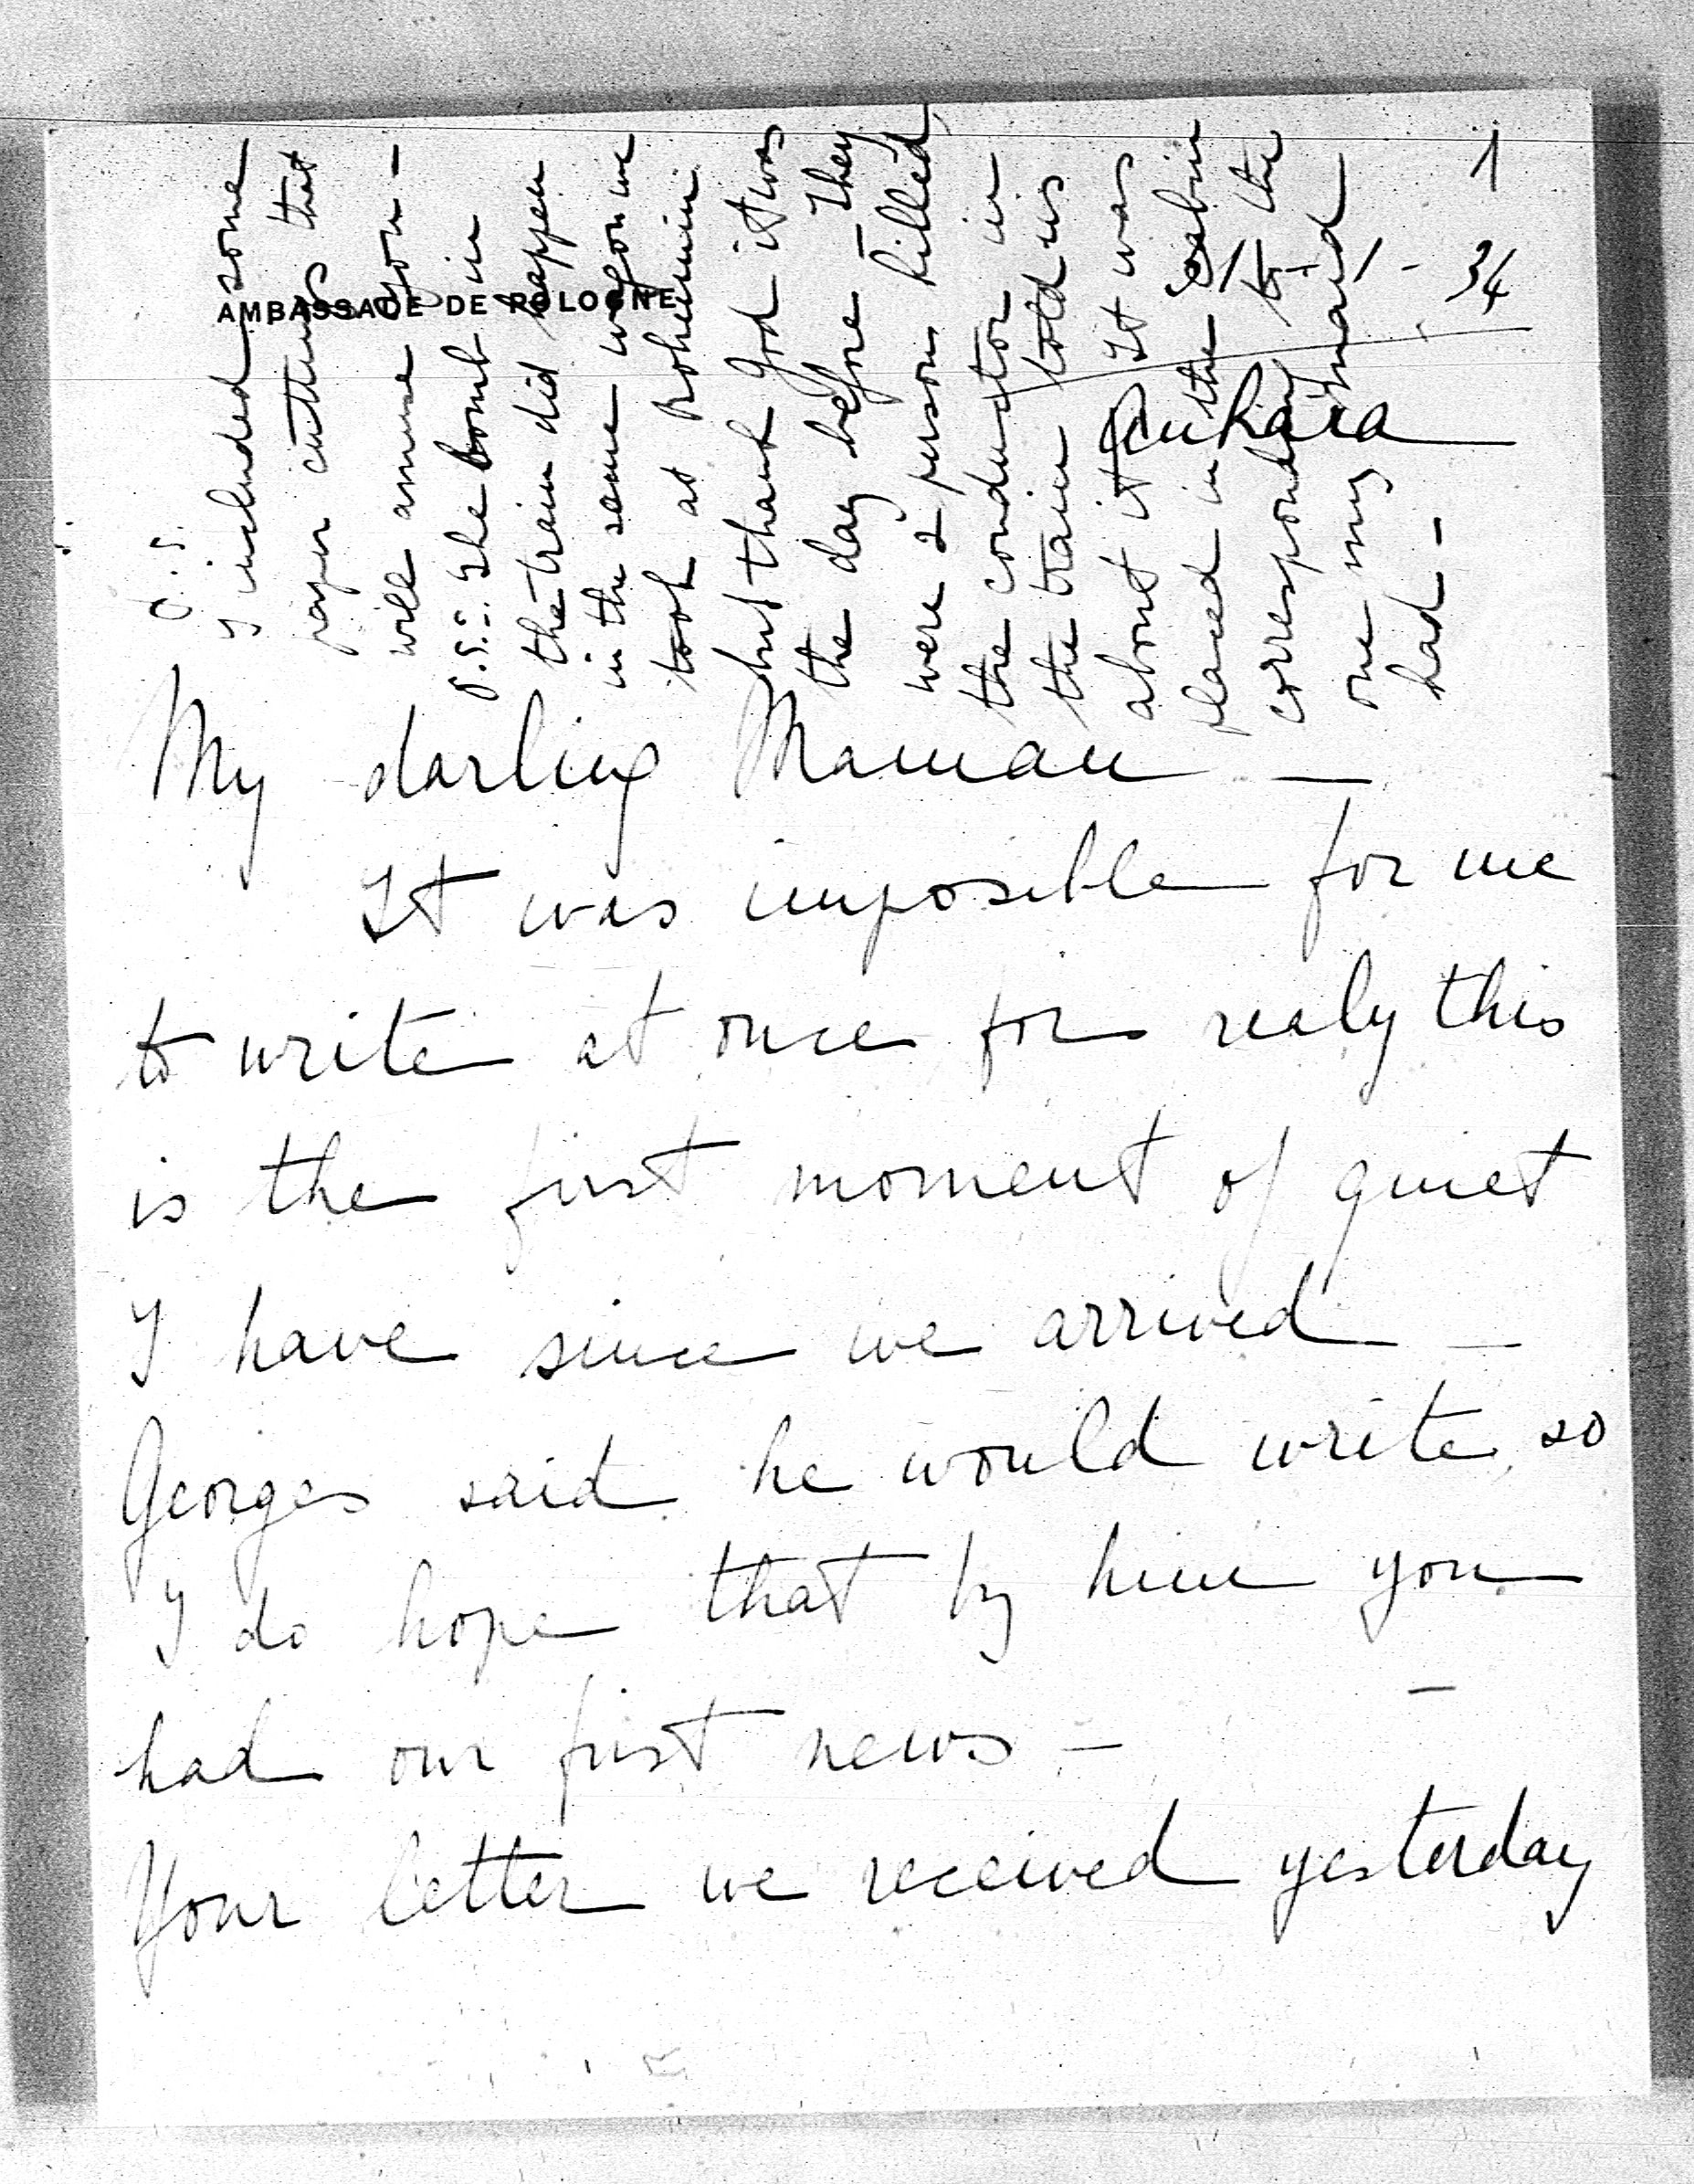 1
AMBASSADE DE POLOGNE
1 - 34
Ankara
My darling Maman —
It was imposible for me
to write at once for realy this
is the first moment of quiet
I have since we arrived —
Georges said he would write, so
I do hope that by him you
had our first news —
Your letter we received yesterday
P.S.
I included some
paper cuttings that
will amuse you —
P.S. The bomb in
the train did happen
in the same wagon we
took at
but thank God it was
the day before — They
were 2 persons killed,
the conductor in
the train told us
about it. It was
placed in the cabin
corresponding to the
one my maid
had —